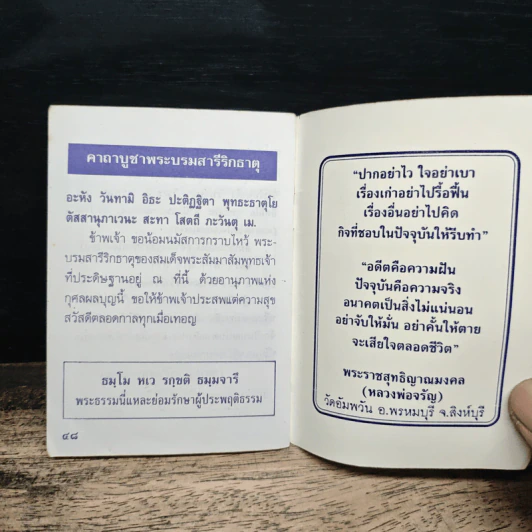 คาถาบูชาพระบรมสารีริกธาตุ
อะหัง วันทามิ อิธะ ปะติฏฐิตา พุทธะธาตุโย
ตัสสานุภาเวนะ สะทา โสตถี ภะวันตุ เม.
ข้าพเจ้า ขอน้อมนมัสการกราบไหว้ พระ-
บรมสารีริกธาตุของสมเด็จพระสัมมาสัมพุทธเจ้า
ที่ประดิษฐานอยู่ ณ ที่นี้ ด้วยอานุภาพแห่ง
กุศลผลบุญนี้ ขอให้ข้าพเจ้าประสพแต่ความสุข
สวัสดีตลอดกาลทุกเมื่อเทอญ
ธมฺโม หเว รกฺขติ ธมฺมจารี
พระธรรมนี่แหละย่อมรักษาผู้ประพฤติธรรม
๔๘
“ปากอย่าไว ใจอย่าเบา
เรื่องเก่าอย่าไปรื้อฟื้น
เรื่องอื่นอย่าไปคิด
กิจที่ชอบในปัจจุบันให้รีบทำ”
“อดีตคือความฝัน
ปัจจุบันคือความจริง
อนาคตเป็นสิ่งไม่แน่นอน
อย่าจับให้มั่น อย่าคั้นให้ตาย
จะเสียใจตลอดชีวิต”
พระราชสุทธิญาณมงคล
(หลวงพ่อจรัญ)
วัดอัมพวัน อ.พรหมบุรี จ.สิงห์บุรี